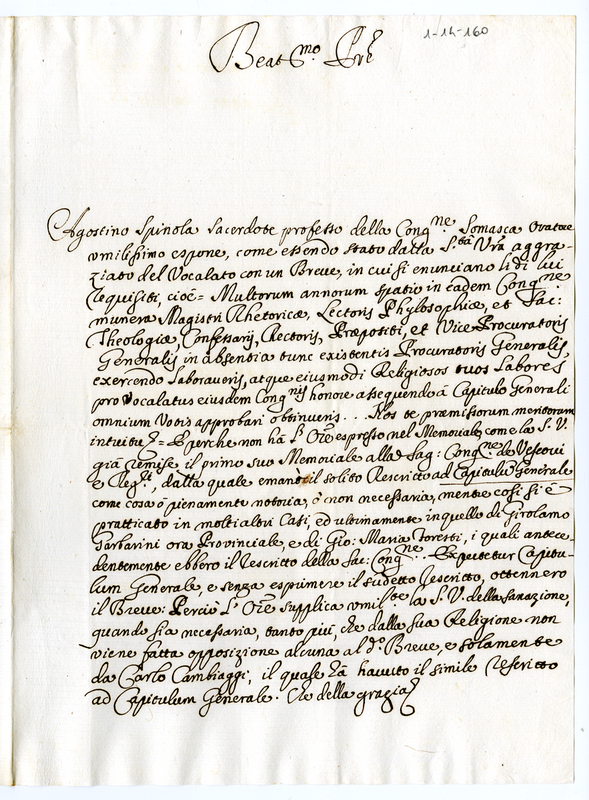 1-14-160
Beat.mo Pre
Agostino Spinola Sacerdote professo della Cong.ne Somasca Oratore
umilissimo espone, come essendo stato dalla S.tà Vra aggra-
ziato del Vocalato con un Breve, in cui si enunciano li di lui
requisiti, cioè = Multorum annorum spatio in eadem Cong.ne
munera Magistri Rhetoricæ, Lectoris Phylosophiæ, et Sac:
Theologiæ, Confessarij, Rectoris, Præpositi, et Vice Procuratoris
Generalis in absentia tunc existentis Procuratoris Generalis,
exercendo laboraveris, atque eiusmodi Religiosos tuos labores
pro Vocalatus eiusdem Cong.nis honore assequendo à Capitulo Generali
omnium Votis approbari obtinueris... Nos te præmissorum meritorum
intuitu &= E perche non hà l'Ore espresso nel Memoriale, come la S. V.
già rimise il primo suo Memoriale alla Sag: Cong.ne de Vescovi
e Reg.ri, dalla quale emanò il solito Rescritto ad Capitulum Generale
come cosa ò pienamente notoria, ò non necessaria, mentre così si è
pratticato in molti altri Casi, ed ultimamente in quello di Girolamo
Garbarini ora Provinciale, e di Gio: Maria Toresti, i quali antece-
dentemente ebbero il rescritto della Sac: Cong.ne Expectetur Capitu-
lum Generale, e senza esprimere il sudetto rescritto, ottennero
il Breve: Perciò l'Ore supplica umil.te la S. V. della sanazione,
quando sia necessaria, tanto più, che dalla sua Religione non
viene fatta opposizione alcuna al d.o Breve, e solamente
da Carlo Cambiaggi, il quale hà havuto il simile rescritto
ad Capitulum Generale. Che della grazia &